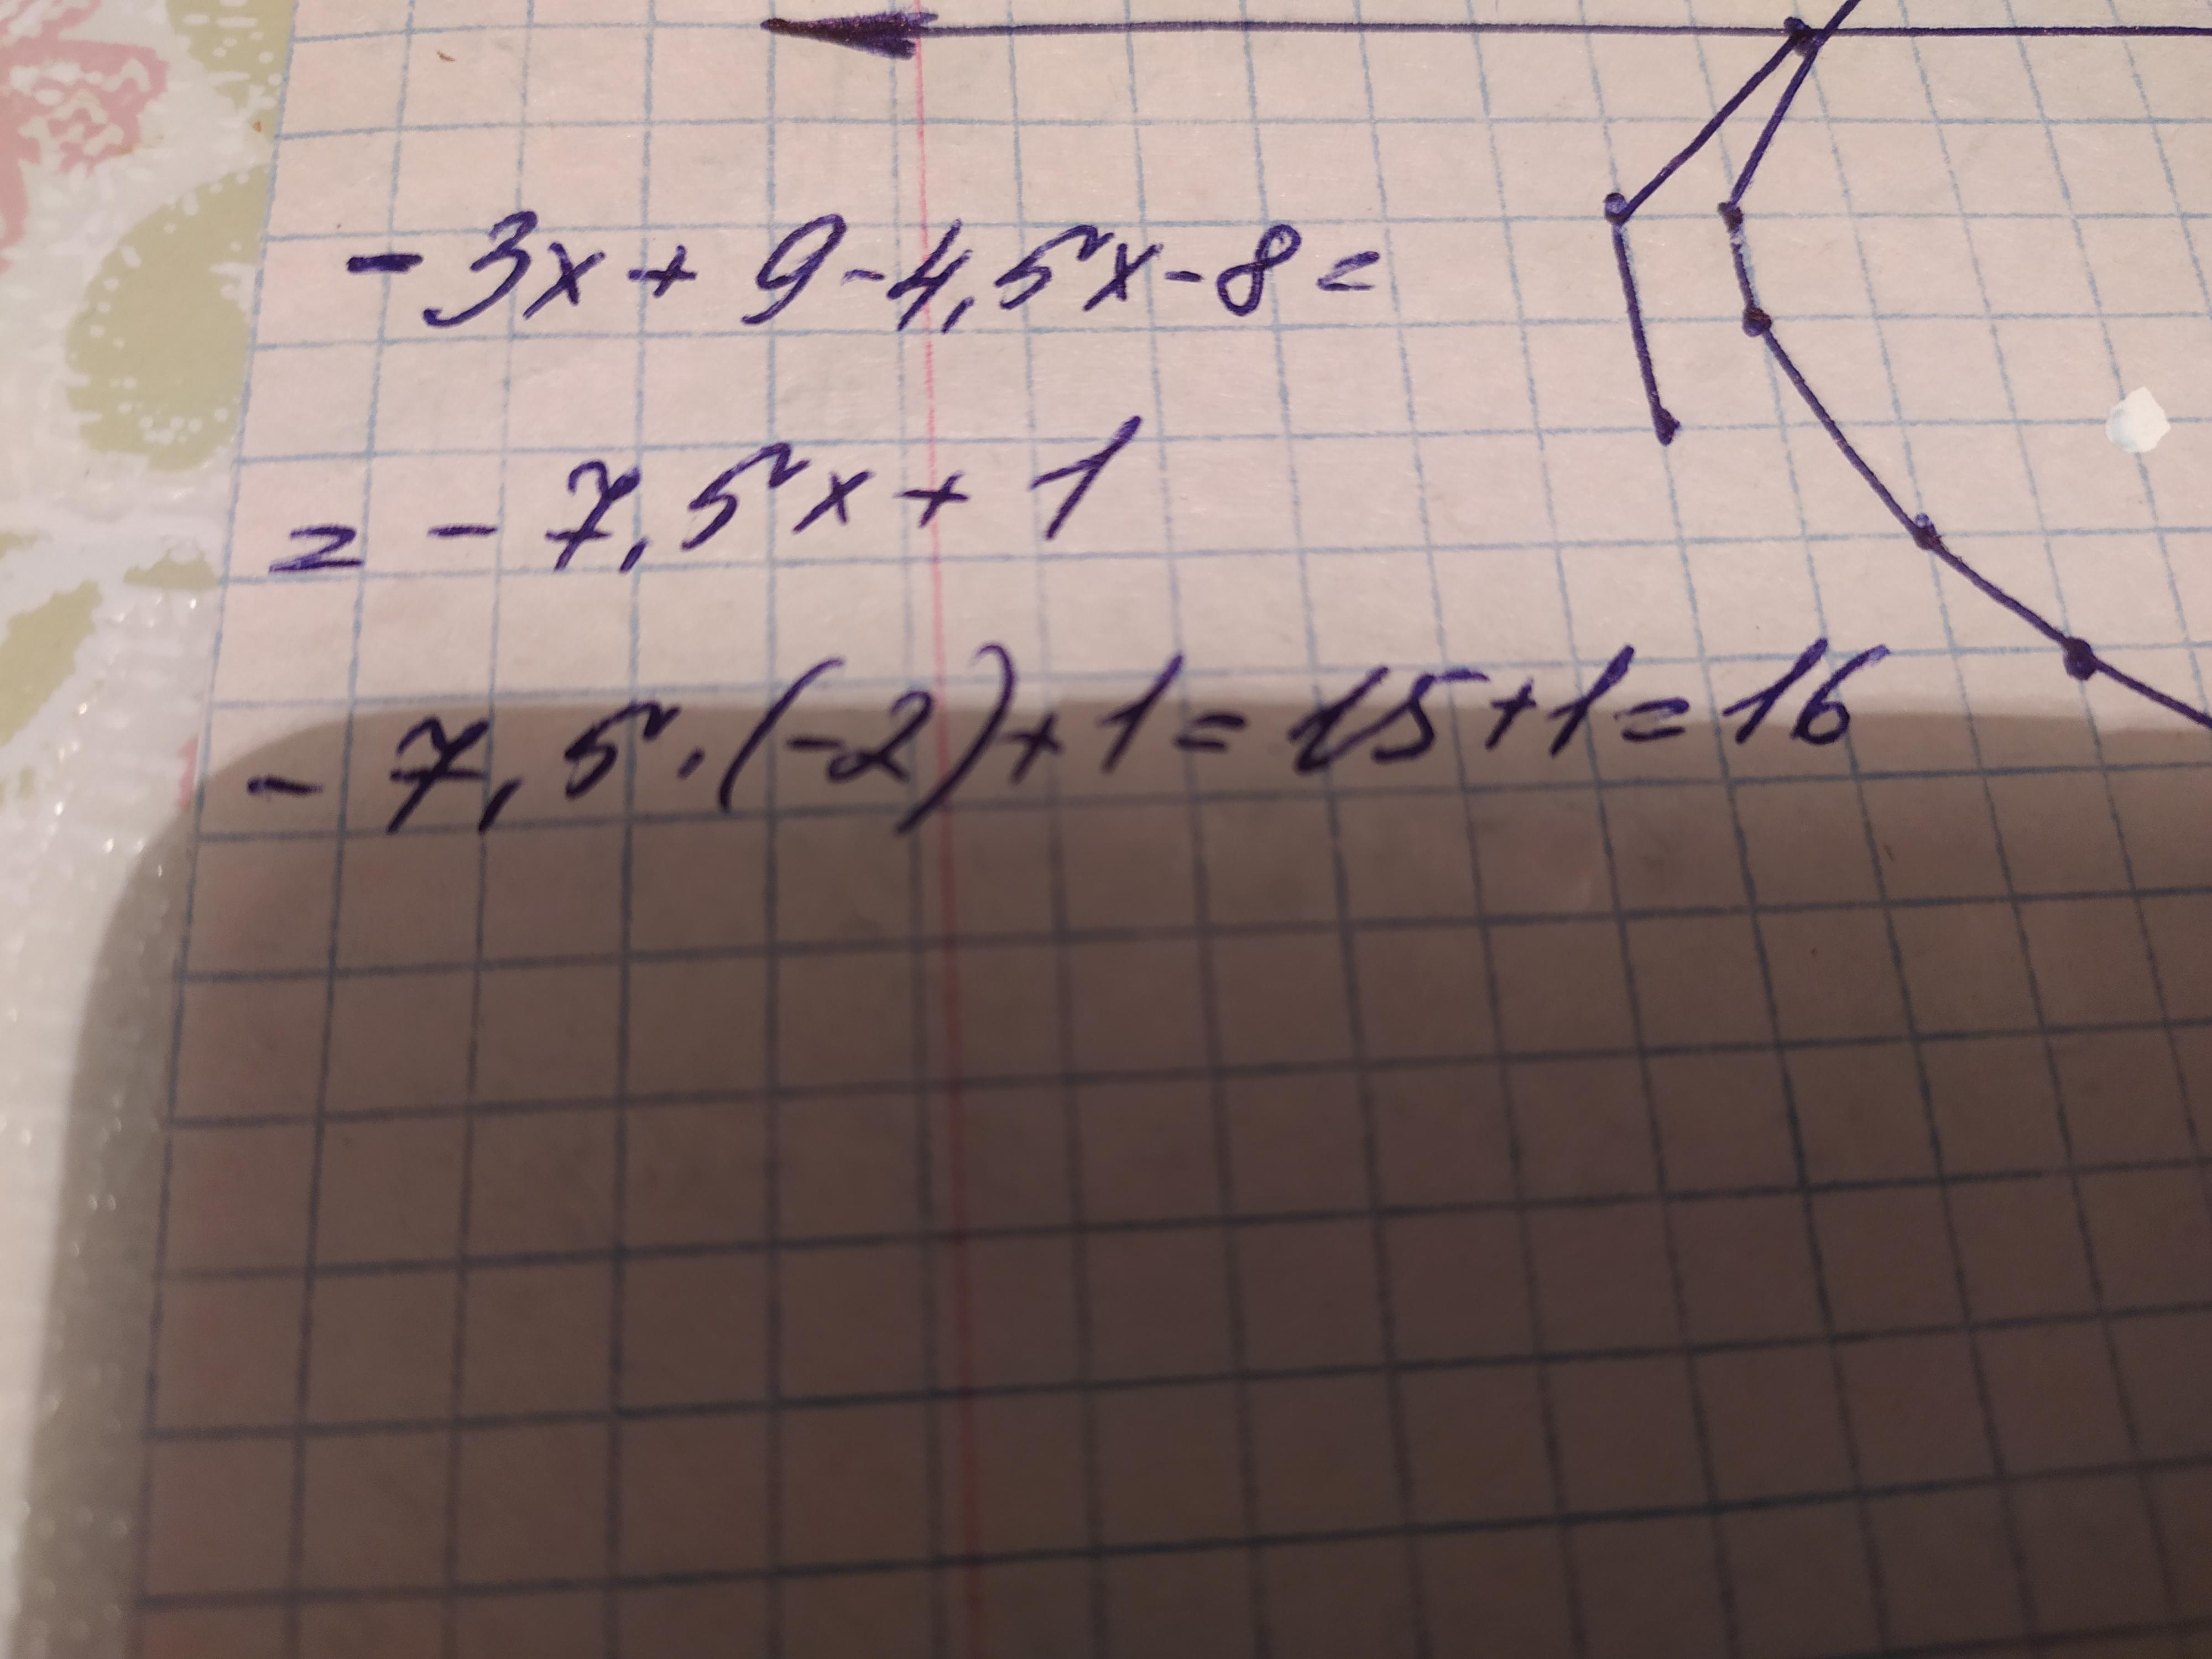 - 3x + 9 - 4,5x - 8 =
= - 7,5x + 1
- 7,5 · (-2) + 1 = 15 + 1 = 16